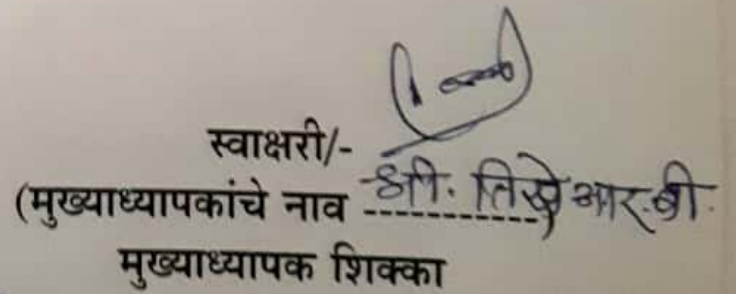 स्वाक्षरी/-
(मुख्याध्यापकांचे नाव श्री. तिखे आर.बी.)
मुख्याध्यापक शिक्का